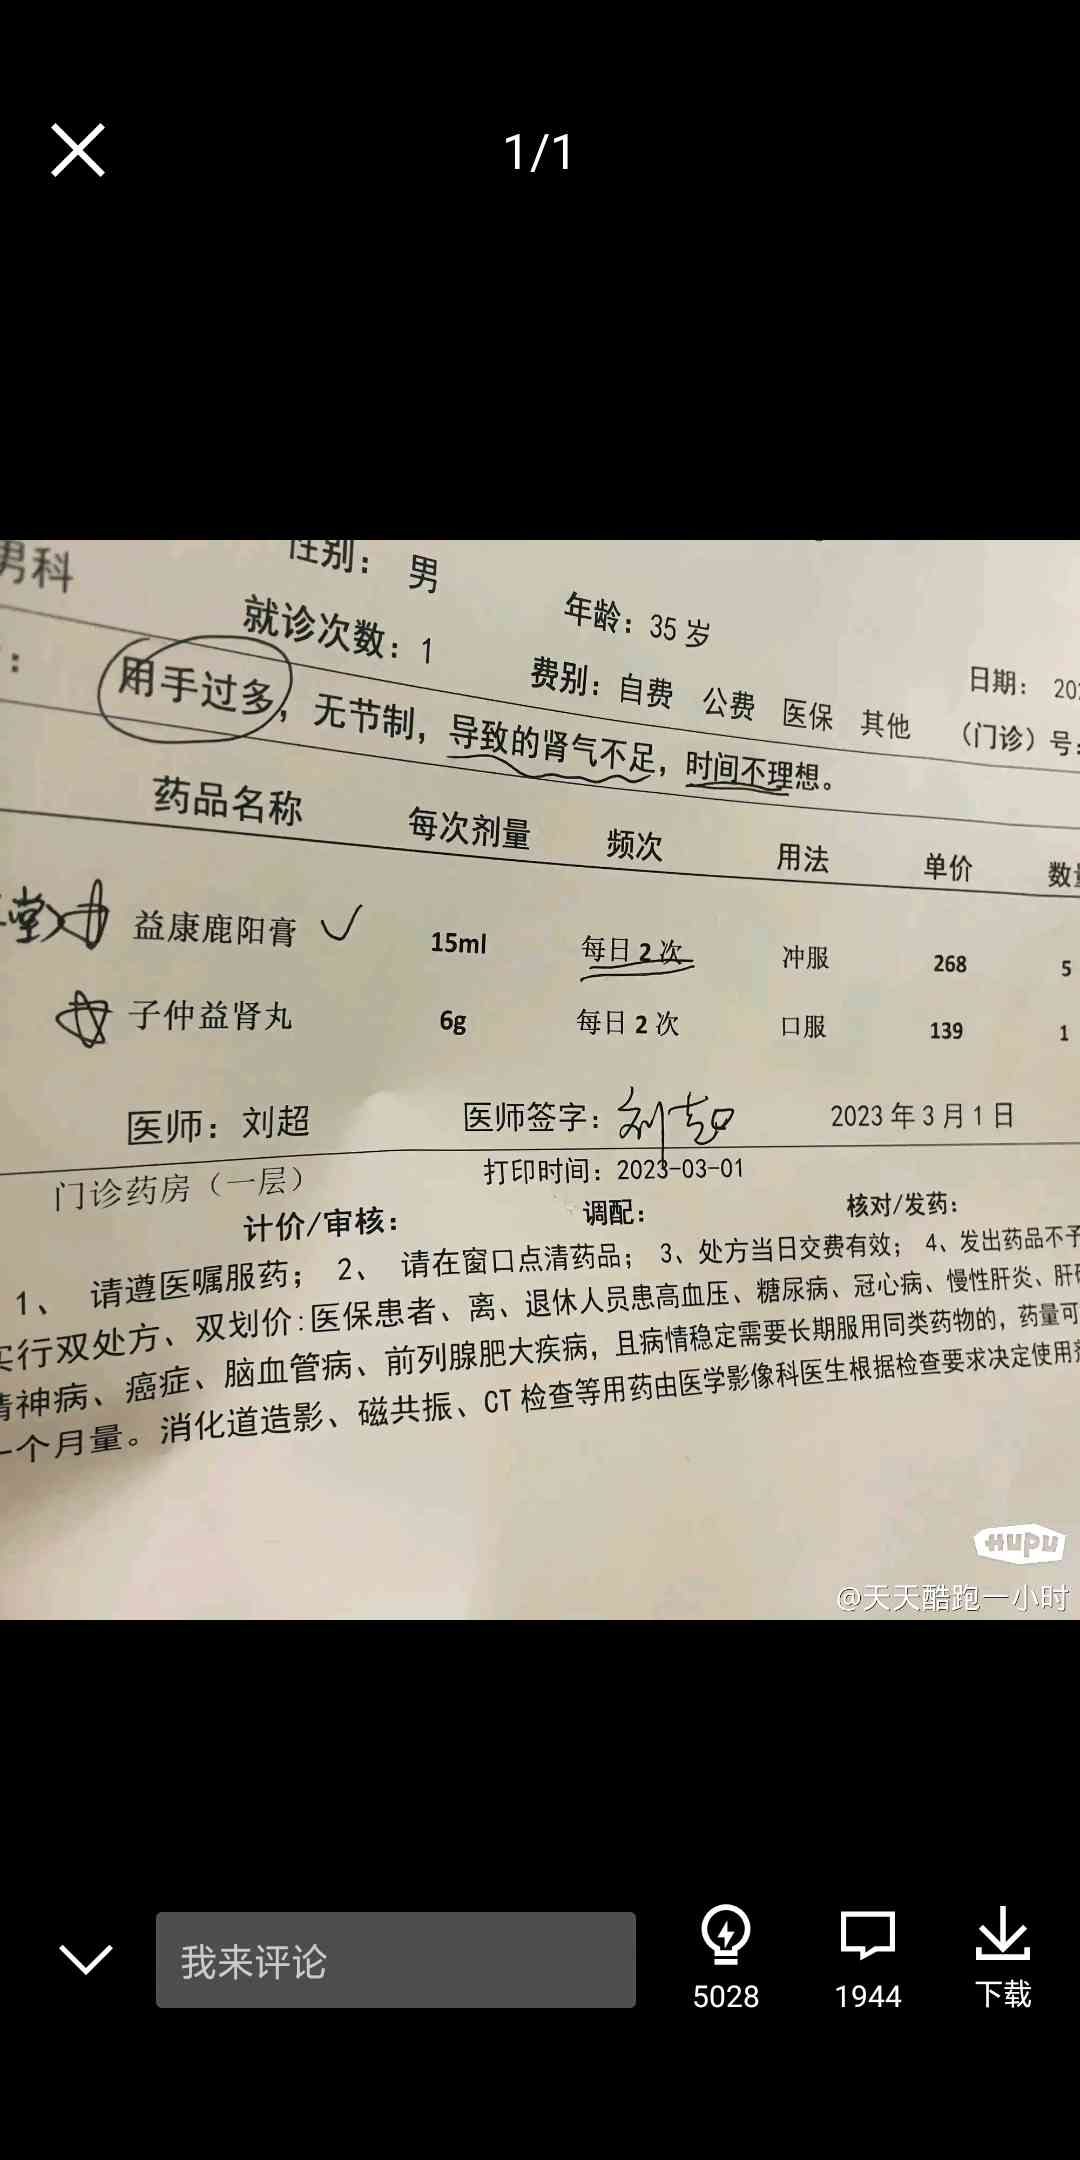 1/1
男科
性别： 男
年龄：35 岁
就诊次数：1
费别：自费 公费 医保 其他
日期： 20
（门诊）号：
：
用手过多，无节制，导致的肾气不足，时间不理想。
药品名称 每次剂量 频次 用法 单价 数量
堂 益康鹿阳膏 15ml 每日 2 次 冲服 268 5
子仲益肾丸 6g 每日 2 次 口服 139 1
医师：刘超 医师签字：刘超 2023 年 3 月 1 日
门诊药房（一层） 打印时间：2023-03-01
计价/审核： 调配： 核对/发药：
1、 请遵医嘱服药； 2、 请在窗口点清药品； 3、处方当日交费有效； 4、发出药品不予
实行双处方、双划价:医保患者、离、退休人员患高血压、糖尿病、冠心病、慢性肝炎、肝硬
精神病、癌症、脑血管病、前列腺肥大疾病，且病情稳定需要长期服用同类药物的，药量可
一个月量。消化道造影、磁共振、CT 检查等用药由医学影像科医生根据检查要求决定使用剂
Hupu
@天天酷跑一小时
我来评论
5028
1944
下载